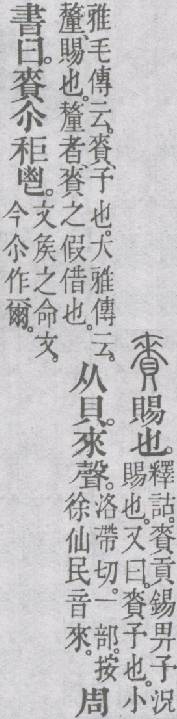 賚賜也。
釋詁。賚貢錫畀予況
賜也。又曰。賚予也。小
雅毛傳云。賚、予也。大雅傳云。
釐、賜也。釐者、賚之假借也。
从貝。來聲。
洛帶切。一部。按
徐仙民音來。
周
書曰。賚尒秬鬯。
文矦之命文。
今尒作爾。